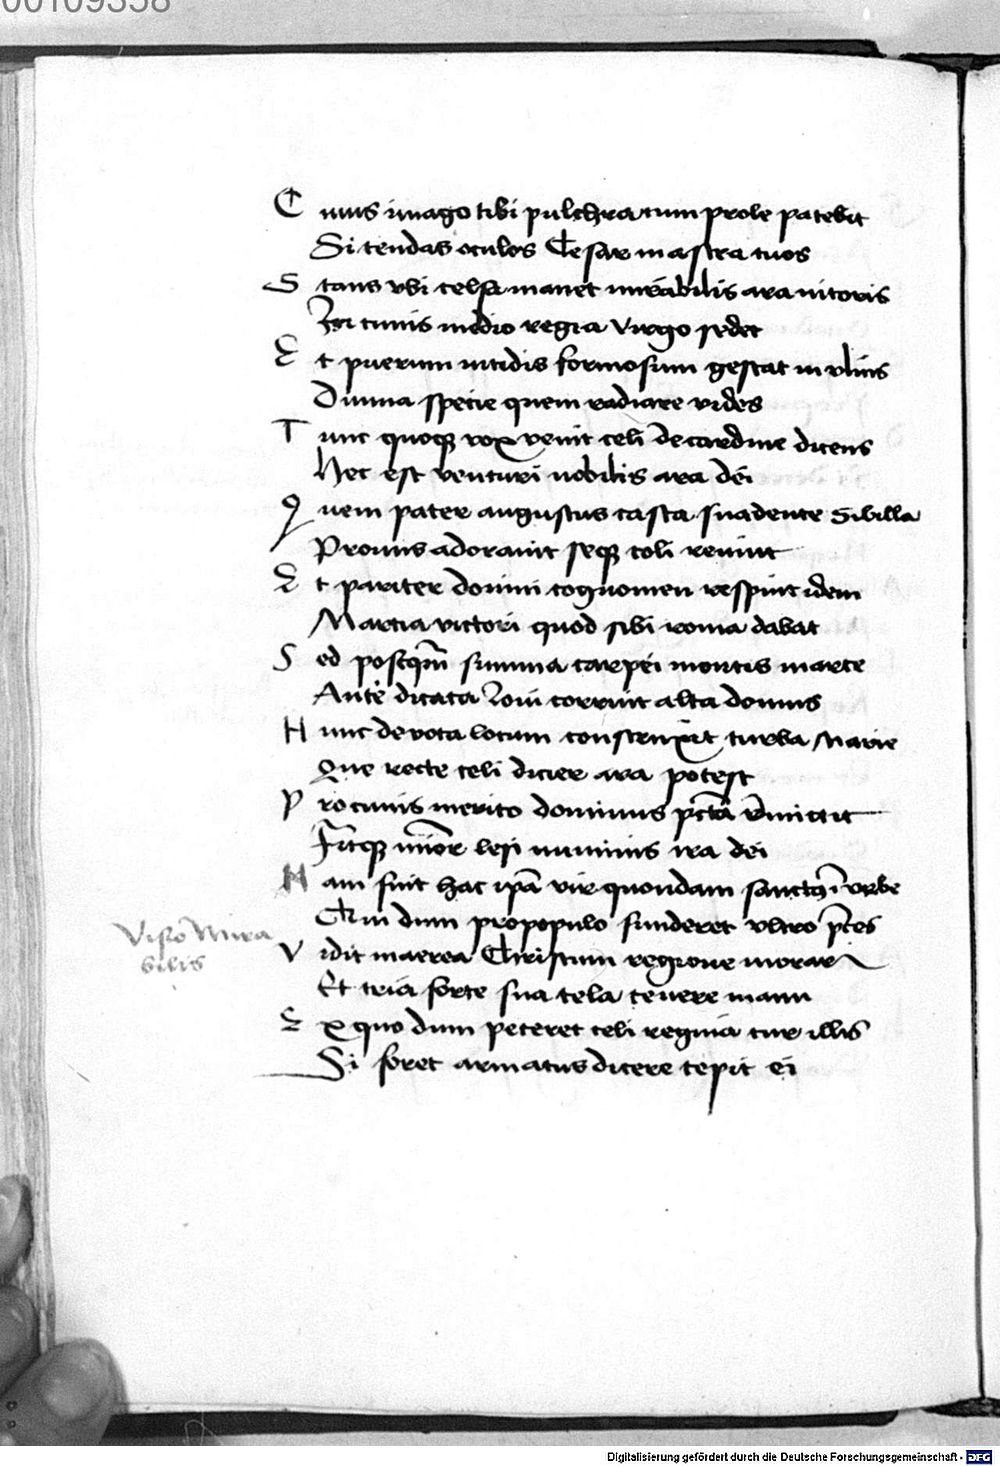 00109358
Cuius imago tibi pulchra cum prole patebit
Si tendas oculos Cesar in astra tuos
Stans vbi celsa manet mirabilis ara nitoris
In cuius medio regia Virgo sedet
Et puerum nitidis formosum gestat in vlnis
Diuina specie quem radiare vides
Tunc quoqꝫ vox venit celi de cardine dicens
Hec est venturi nobilis ara dei
Quem pater augustus casta suadente Sibilla
Pronus adorauit seqꝫ coli renuit
Et pariter domini cognomen respuit idem
Martia victori quod sibi roma dabat
Sed postqm̄ summa tarpei montis in arce
Ante dicata Ioui corruit alta domus
Hunc deuota locum construxit turba Marie
Que recte celi dicier ara potest
Pro cuius merito dominus pctā remittit
Fitqꝫ minor lesi numinis ira dei
Nam fuit hac ipā vir quondam sanctus ī vrbe
Qui dum pro populo funderet vltro pces
Vidit in aerea Christum regione morari
Et tria forte sua tela tenere manu
Ex quo dum peteret celi regina cur illis
Si foret armatus dicere cepit ei
Visio Mira
bilis
Digitalisierung gefördert durch die Deutsche Forschungsgemeinschaft - DFG